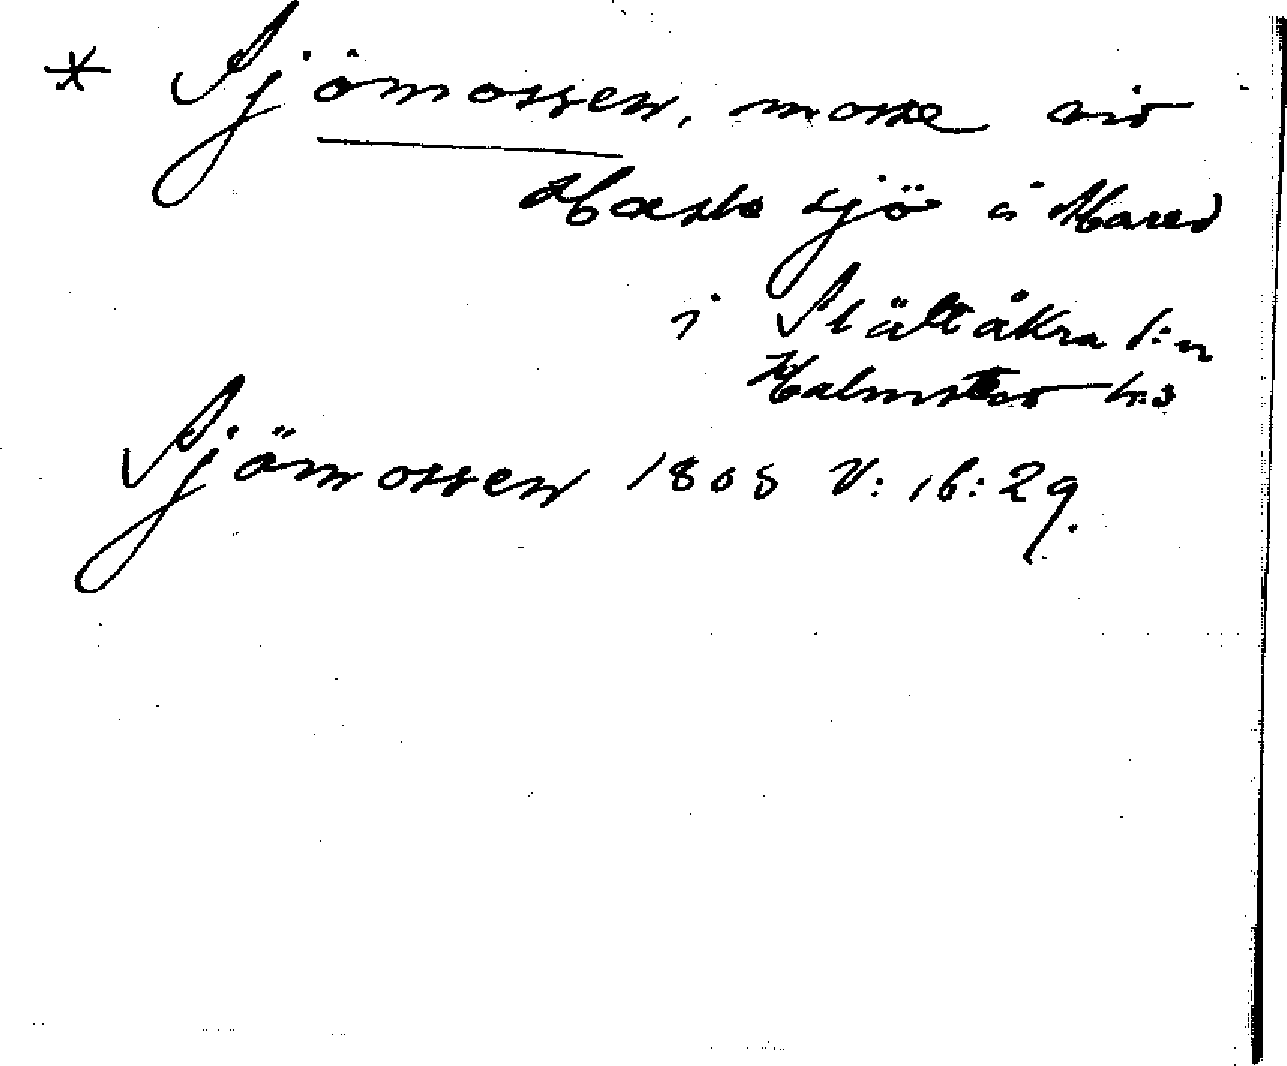 * Sjömossen, mosse vid
sjö å Mared
i Slättåkra l:n
Halmstad h:d
Sjömossen 1808 V: 16: 29.